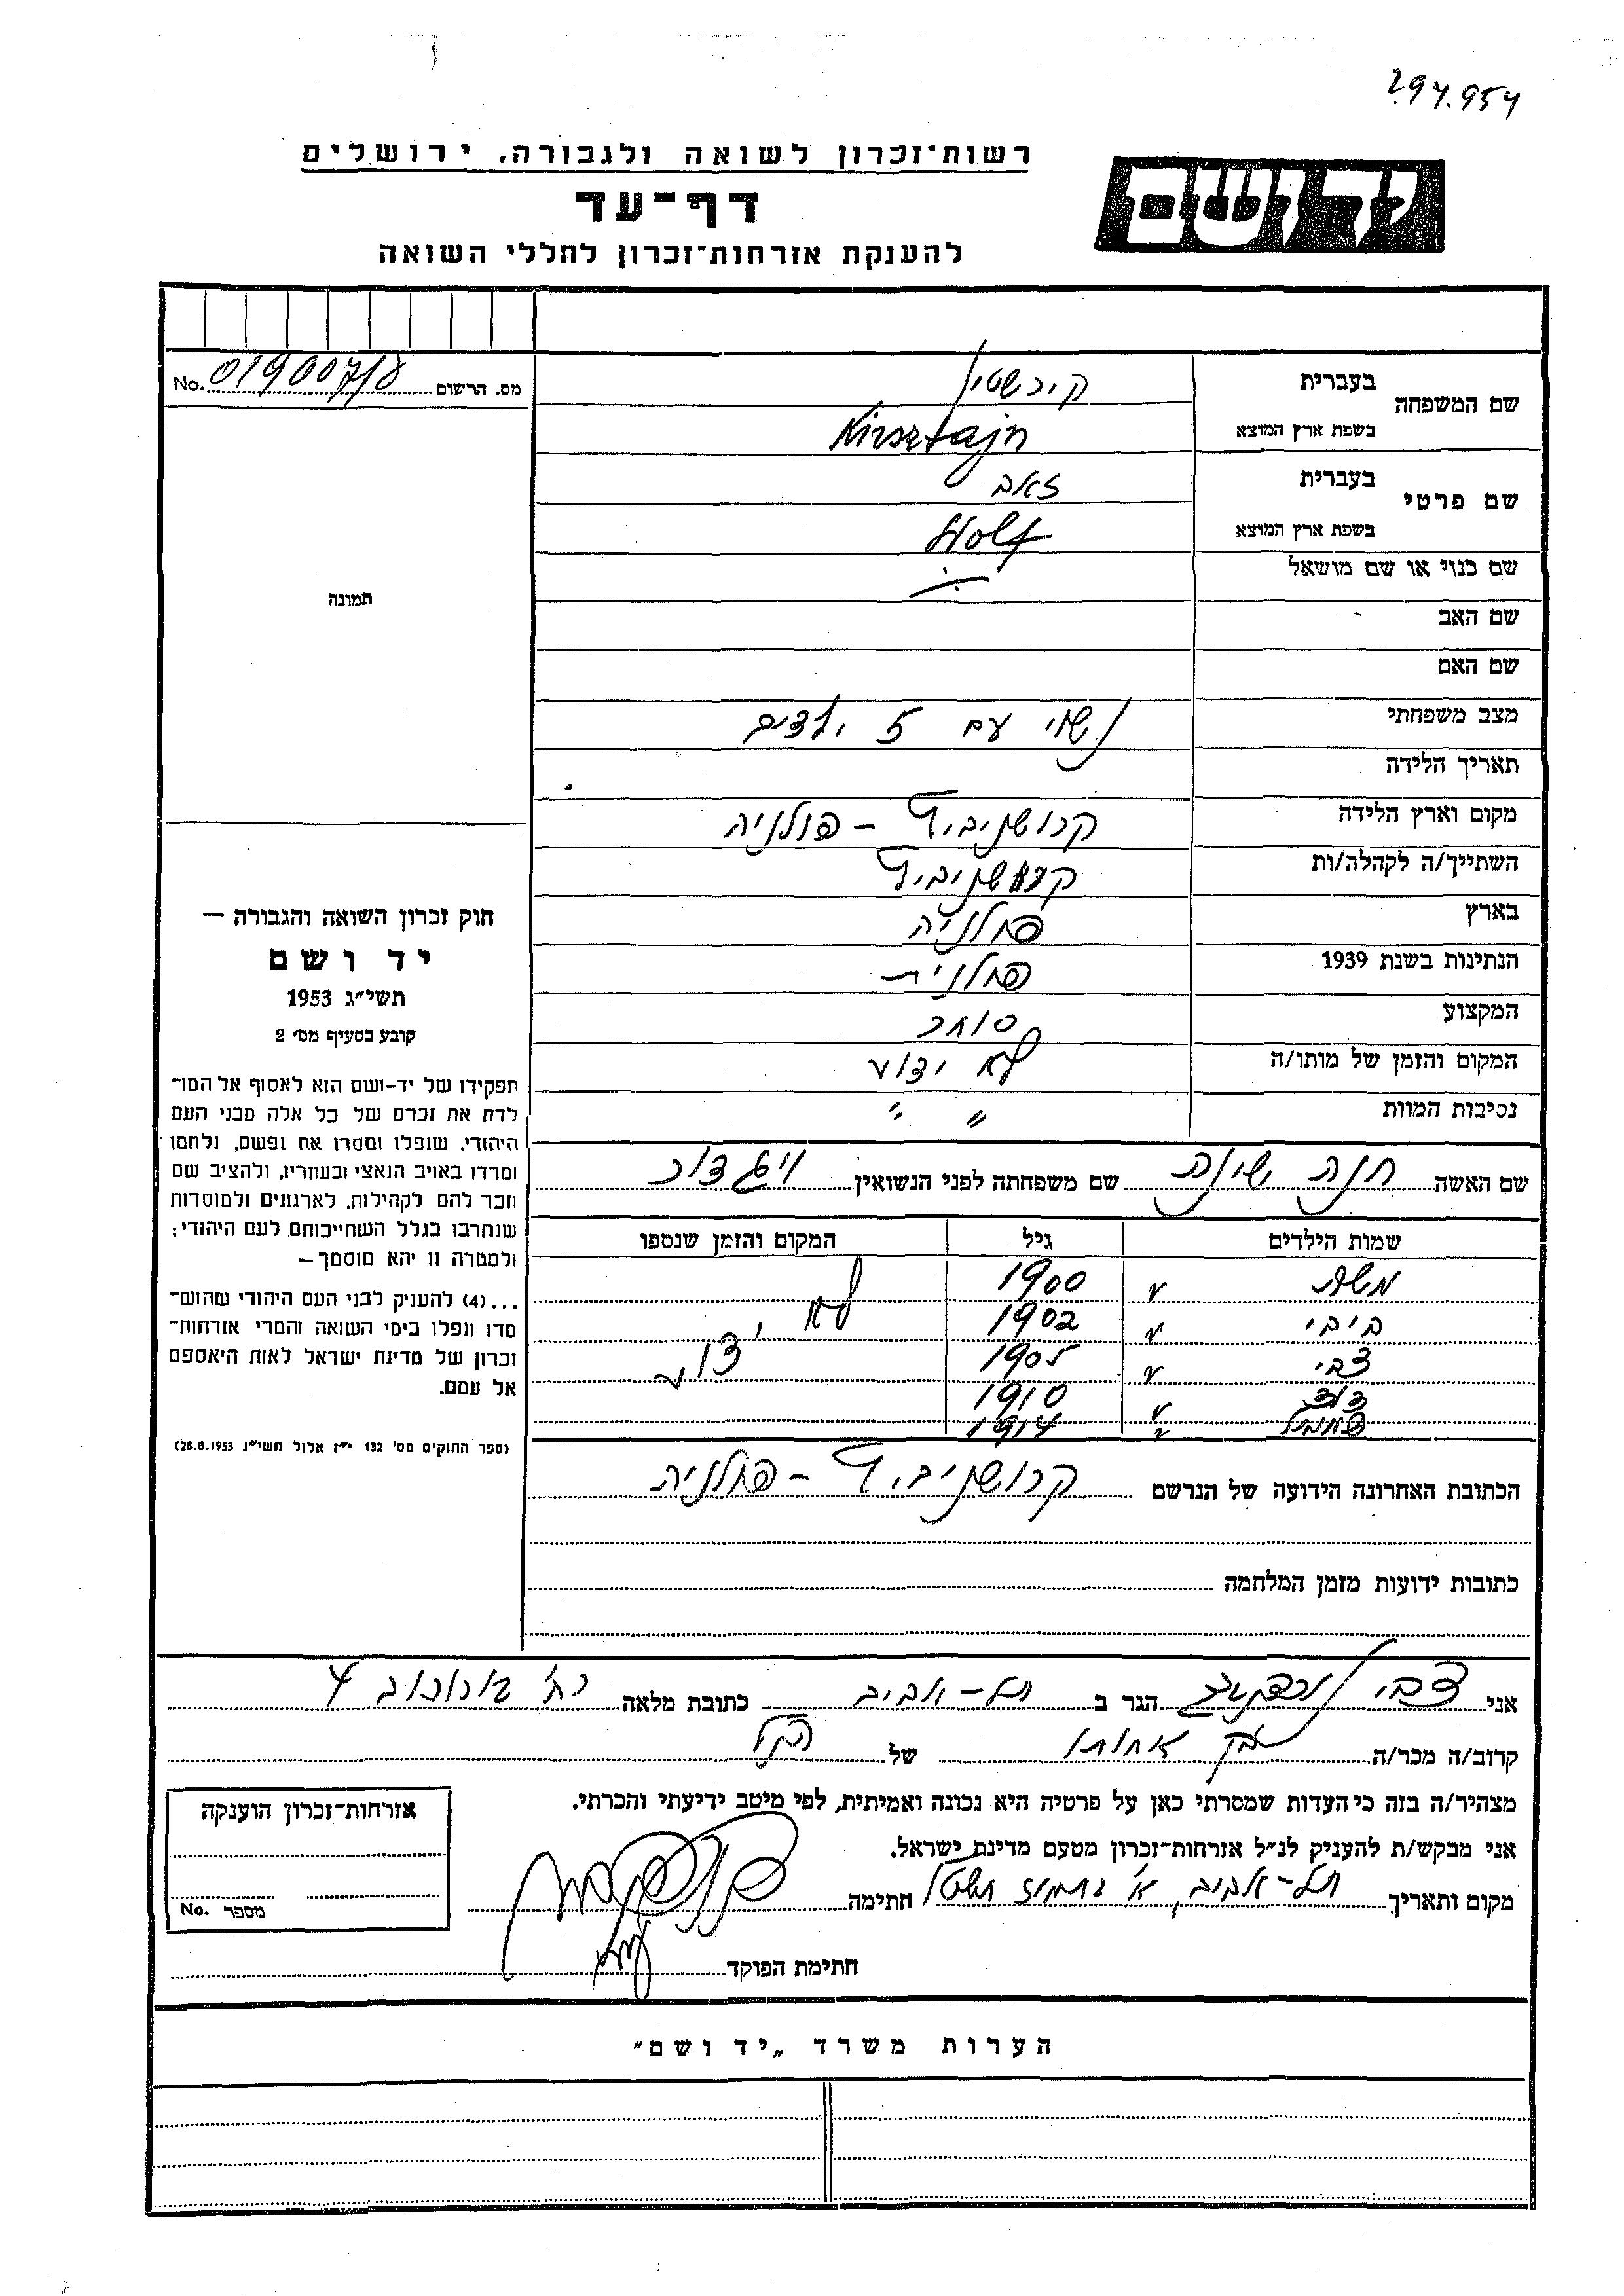 294.954
רשות־זכרון לשואה ולגבורה, ירושלים
ידושם
דף־עד
להענקת אזרחות־זכרון לחללי השואה
מס. הרשום No. 01900718
שם המשפחה
בעברית קירשטין
בשפת ארץ המוצא Kirsztajn
שם פרטי
בעברית זאב
בשפת ארץ המוצא Wolf
שם כנוי או שם מושאל
שם האב
שם האם
מצב משפחתי נשוי עם 5 ילדים
תאריך הלידה
מקום וארץ הלידה קרושניביץ – פולניה
השתייך/ה לקהלה/ות קרושניביץ
בארץ פולניה
הנתינות בשנת 1939 פולנית
המקצוע סוחר
המקום והזמן של מותו/ה לא ידוע
נסיבות המוות " "
תמונה
חוק זכרון השואה והגבורה —
יד ושם
תשי״ג 1953
קובע בסעיף מס׳ 2
תפקידו של יד-ושם הוא לאסוף אל המו־
לדת את זכרם של כל אלה מבני העם
היהודי, שנפלו ומסרו את נפשם, נלחמו
ומרדו באויב הנאצי ובעוזריו, ולהציב שם
וזכר להם לקהילות, לארגונים ולמוסדות
שנחרבו בגלל השתייכותם לעם היהודי;
ולמטרה זו יהא מוסמך—
...(4) להעניק לבני העם היהודי שהוש־
מדו ונפלו בימי השואה והמרי אזרחות־
זכרון של מדינת ישראל לאות היאספם
אל עמם.
(ספר החוקים מס׳ 132 י״ז אלול תשי״ג 28.8.1953)
שם האשה חנה שם משפחתה לפני הנשואין ויגדור
שמות הילדים גיל המקום והזמן שנספו
משה 1900 לא
ביבי 1902
צבי 1905 ידוע
דוד 1910
1914
הכתובת האחרונה הידועה של הנרשם קרושניביץ – פולניה
כתובות ידועות מזמן המלחמה
אני צבי הגר ב תל-אביב כתובת מלאה רח׳ 4
קרוב/ה מכר/ה בן אחותו של הנ״ל
מצהיר/ה בזה כי העדות שמסרתי כאן על פרטיה היא נכונה ואמיתית, לפי מיטב ידיעתי והכרתי.
אני מבקש/ת להעניק לנ״ל אזרחות־זכרון מטעם מדינת ישראל.
מקום ותאריך תל-אביב, א׳ בתמוז חתימה
חתימת הפוקד
אזרחות־זכרון הוענקה
מספר No.
הערות משרד „יד ושם״